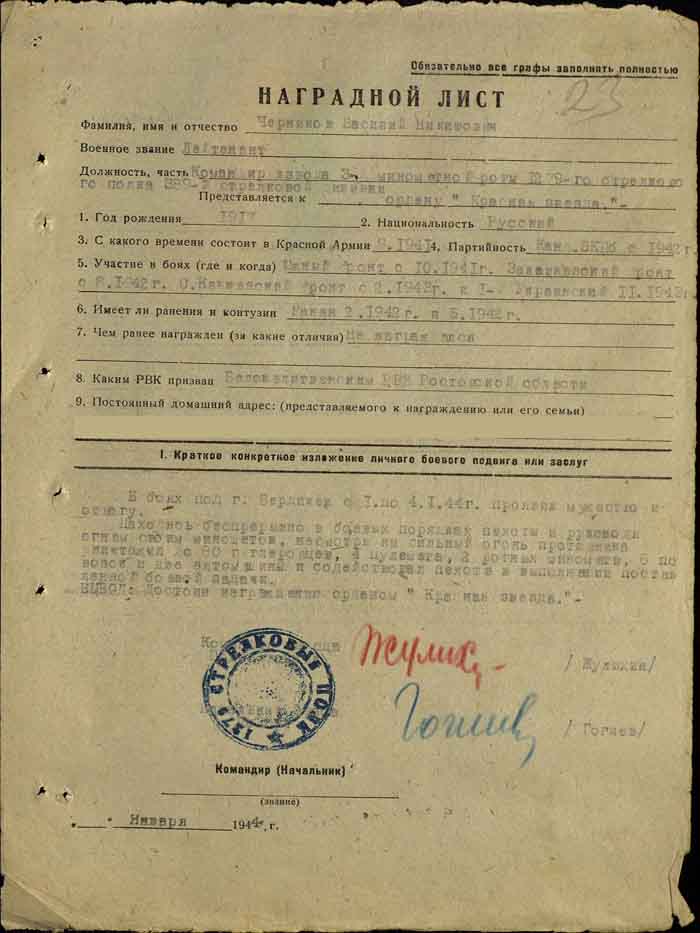 Обязательно все графы заполнять полностью
НАГРАДНОЙ ЛИСТ
23
Фамилия, имя и отчество Василий Никитович
Военное звание Лейтенант
Должность, часть Командир взвода 3- минометной роты 1279-го стрелково
го полка 389-й стрелковой дивизии
Представляется к ордену " Красная звезда."-
1. Год рождения 1917 2. Национальность Русский
3. С какого времени состоит в Красной Армии 9.1941 4. Партийность Канд.ВКПБ с 1942г.
5. Участие в боях (где и когда) Южный фронт с 10.1941г. Закавказский фронт
с 8.1942г. С.Кавказский фронт с 2.1943г. 1- Украинский 11.1943г.
6. Имеет ли ранения и контузии Ранен 2.1942г. и 5.1942г.
7. Чем ранее награжден (за какие отличия) Не награждался
8. Каким РВК призван Белокалитвенским РВК Ростовской области
9. Постоянный домашний адрес: (представляемого к награждению или его семьи)
I. Краткое конкретное изложение личного боевого подвига или заслуг
В боях под г. Бердичев с 1.по 4.1.44г. проявил мужество и
отвагу.
Находясь беспрерывно в боевых порядках пехоты и руководя
огнем своих минометов, несмотря на сильный огонь противника
уничтожил до 80 гитлеровцев, 4 пулемета, 2 ротных миномета, 5 по
возок и две автомашины и содействовал пехоте в выполнении постав
ленной боевой задачи.
ВЫВОД: Достоин награждения орденом " Красная звезда."-
Жулих
/ Жулихин/
1279 СТРЕЛКОВЫЙ ПОЛК
Гогиев
/ Гогиев/
Командир (Начальник)
(звание)
" " Января 1944 г.